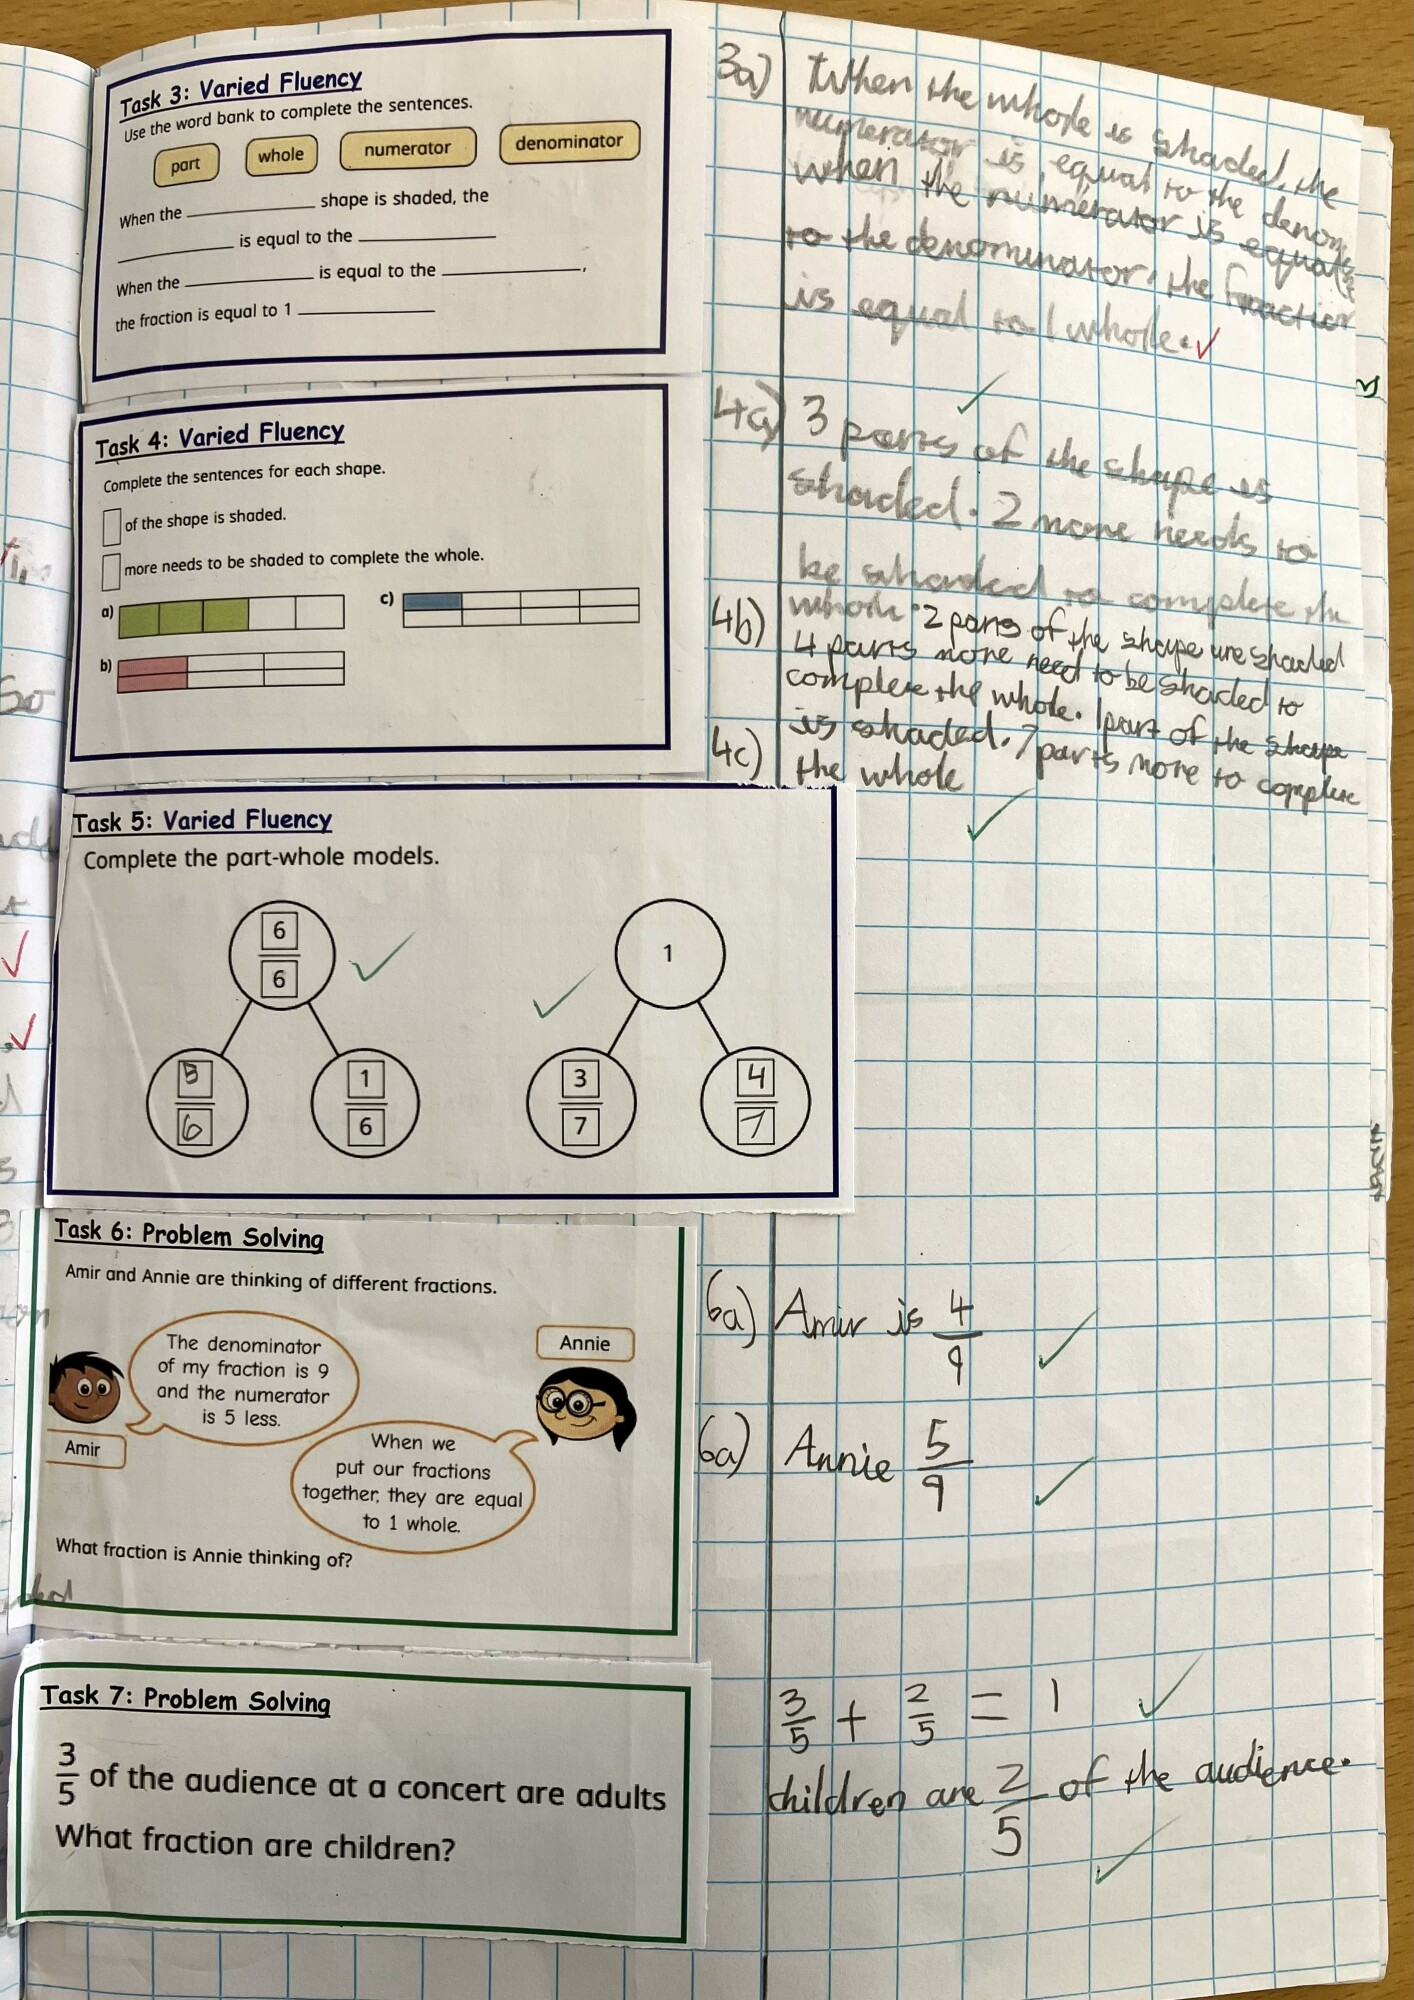 Task 3: Varied Fluency
Use the word bank to complete the sentences.
part whole numerator denominator
When the ____________ shape is shaded, the
____________ is equal to the ____________
When the ____________ is equal to the ____________,
the fraction is equal to 1 ____________
3a) When the whole is shaded, the
numerator is equal to the
when the numerator is equal
to the denominator, the fraction
is equal to 1 whole.
Task 4: Varied Fluency
Complete the sentences for each shape.
of the shape is shaded.
more needs to be shaded to complete the whole.
a)
c)
b)
4a) 3 parts of the shape is
shaded. 2 more needs to
be shaded to complete the
4b) whole. 2 parts of the shape are shaded
4 parts more need to be shaded to
complete the whole. 1 part of the shape
4c) is shaded. 7 parts more to complete
the whole
Task 5: Varied Fluency
Complete the part-whole models.
6
6
1
5
6
1
6
3
7
4
7
Task 6: Problem Solving
Amir and Annie are thinking of different fractions.
The denominator
of my fraction is 9
and the numerator
is 5 less.
Amir
Annie
When we
put our fractions
together, they are equal
to 1 whole.
What fraction is Annie thinking of?
6a) Amir is 4/9
6a) Annie 5/9
Task 7: Problem Solving
3/5 of the audience at a concert are adults
What fraction are children?
3/5 + 2/5 = 1
children are 2/5 of the audience.